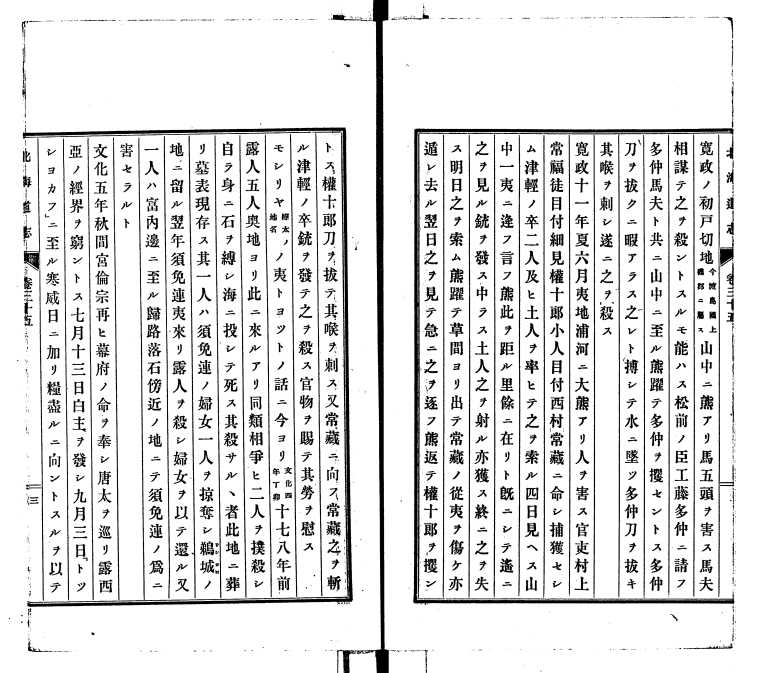 北海道志 卷三十五
寬政ノ初戸切地今渡島國上磯郡ニ屬ス山中ニ熊アリ馬五頭ヲ害ス馬夫
相謀テ之ヲ殺ントスルモ能ハス松前ノ臣工藤多仲ニ請フ
多仲馬夫ト共ニ山中ニ至ル熊躍テ多仲ヲ攫セントス多仲
刀ヲ拔クニ暇アラス之レト搏シテ水ニ墜ツ多仲刀ヲ拔キ
其喉ヲ刺シ遂ニ之ヲ殺ス
寬政十一年夏六月夷地浦河ニ大熊アリ人ヲ害ス官吏村上
常福徒目付細見權十郎小人目付西村常藏ニ命シ捕獲セシ
ム津輕ノ卒二人及ヒ土人ヲ率ヒテ之ヲ索ル四日見ヘス山
中一夷ニ逢フ言フ熊此ヲ距ル里餘ニ在リト旣ニシテ遙ニ
之ヲ見ル銃ヲ發ス中ラス土人之ヲ射ル亦獲ス終ニ之ヲ失
ス明日之ヲ索ム熊躍テ草間ヨリ出テ常藏ノ從夷ヲ傷ケ亦
遁レ去ル翌日之ヲ見テ急ニ之ヲ逐フ熊返テ權十郎ヲ攫ン
トス權十郎刀ヲ拔テ其喉ヲ刺ス又常藏ニ向フ常藏之ヲ斬
ル津輕ノ卒銃ヲ發テ之ヲ殺ス官物ヲ賜テ其勞ヲ慰ス
モシリヤ樺太地名ノ夷トヨツトノ話ニ今ヨリ文化四年丁卯十七八年前
露人五人奧地ヨリ此ニ來ルアリ同類相爭ヒ二人ヲ撲殺シ
自ラ身ニ石ヲ縛シ海ニ投シテ死ス其殺サルヽ者此地ニ葬
リ墓表現存ス其一人ハ須免連ノ婦女一人ヲ掠奪シ鵜城ノ
地ニ留ル翌年須免連夷來リ露人ヲ殺シ婦女ヲ以テ還ル又
一人ハ富內邊ニ至ル歸路落石傍近ノ地ニテ須免連ノ爲ニ
害セラルト
文化五年秋間宮倫宗再ヒ幕府ノ命ヲ奉シ唐太ヲ巡リ露西
亞ノ經界ヲ窮ントス七月十三日白主ヲ發シ九月三日トツ
シヨカフニ至ル寒威日ニ加リ糧盡ルニ向ントスルヲ以テ
北海道志 卷三十五 三